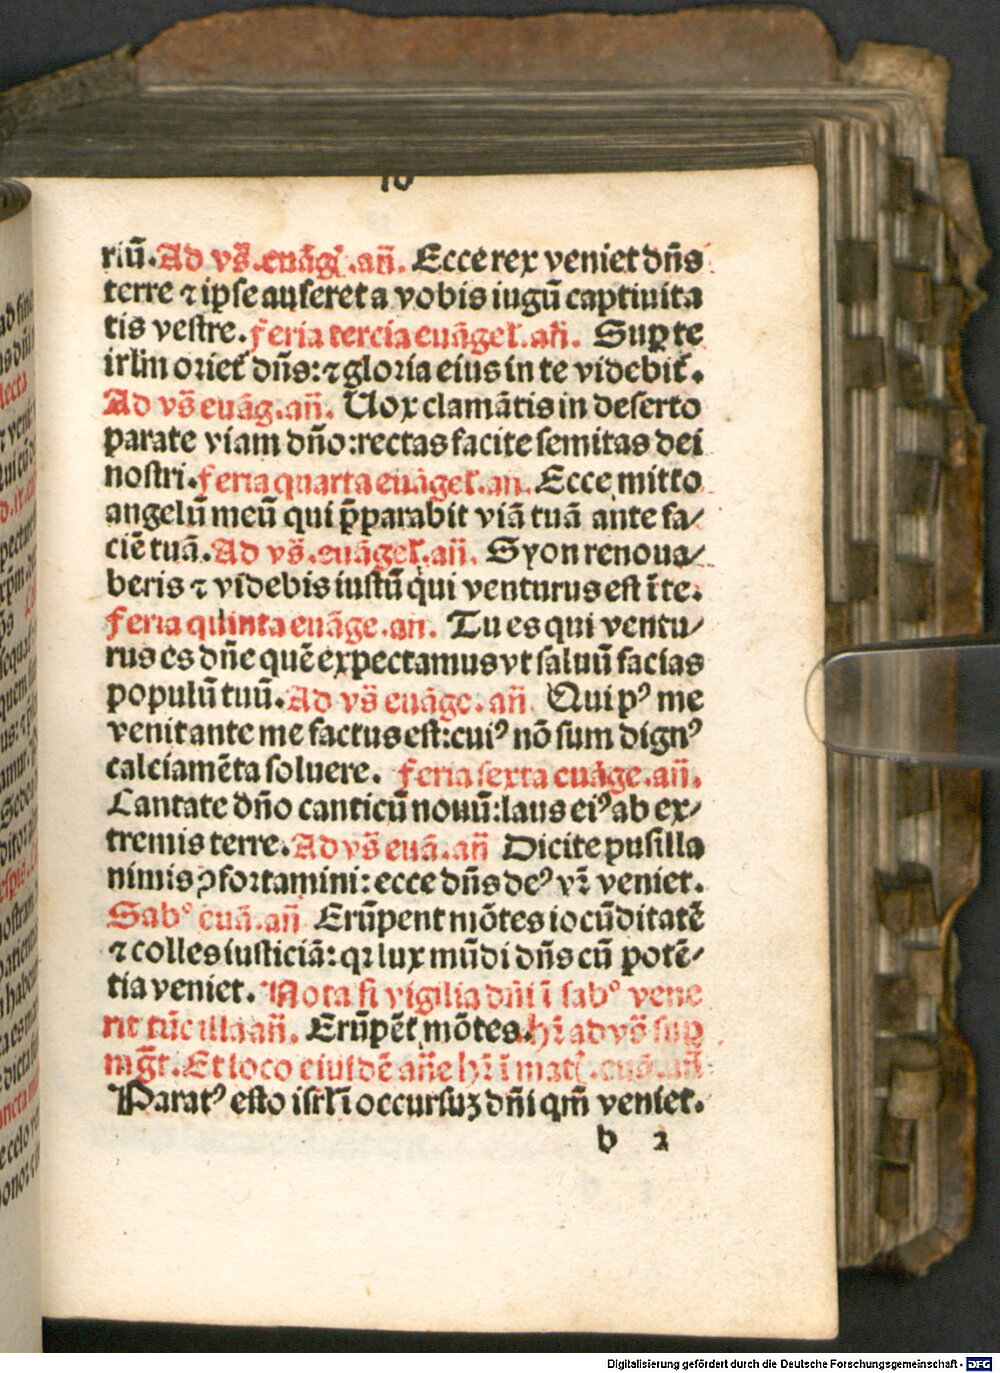 10
riū. Ad vs̄. euāgꝭ. an̄. Ecce rex veniet dn̄s
terre ⁊ ipse auferet a vobis iugū captiuita
tis vestre. feria tercia euāgeł. an̄. Suꝑ te
irlm orieť dn̄s: ⁊ gloria eius in te videbiť.
Ad vs̄ euāg. an̄. Uox clamātis in deserto
parate viam dn̄o: rectas facite semitas dei
nostri. feria quarta euāgeł. an. Ecce mitto
angelū meū qui p̄parabit viā tuā ante fa⸗
ciē tuā. Ad vs̄. euāgeł. an̄. Syon renoua⸗
beris ⁊ videbis iustū qui venturus est ī te.
feria quinta euāge. an. Tu es qui ventu⸗
rus es dn̄e quē expectamus vt saluū facias
populū tuū. Ad vs̄ euāge. an̄. Qui pꝰ me
venit ante me factus est: cuiꝰ nō sum dignꝰ
calciamēta soluere. feria sexta euāge. an̄.
Cantate dn̄o canticū nouū: laus eiꝰ ab ex⸗
tremis terre. Ad vs̄ euā. an̄ Dicite pusilla
nimis ꝯfortamini: ecce dn̄s deꝰ vr̄ veniet.
Sabꝰ euā. an̄ Erūpent mōtes iocūditatē
⁊ colles iusticiā: qꝛ lux mūdi dn̄s cū potē⸗
tia veniet. Nota si vigilia dn̄i ī sabꝰ vene
rit tūc illa an̄. Erūpēt mōtes. hꝛ̄ ad vs̄ suꝑ
mg̅t. Et loco eiusdē an̄e hꝛ̄ ī matꝭ. euā. an̄
Paratꝰ esto isrl̄ i occursuꝫ dn̄i qm̄ veniet.
b 2
Digitalisierung gefördert durch die Deutsche Forschungsgemeinschaft - DFG